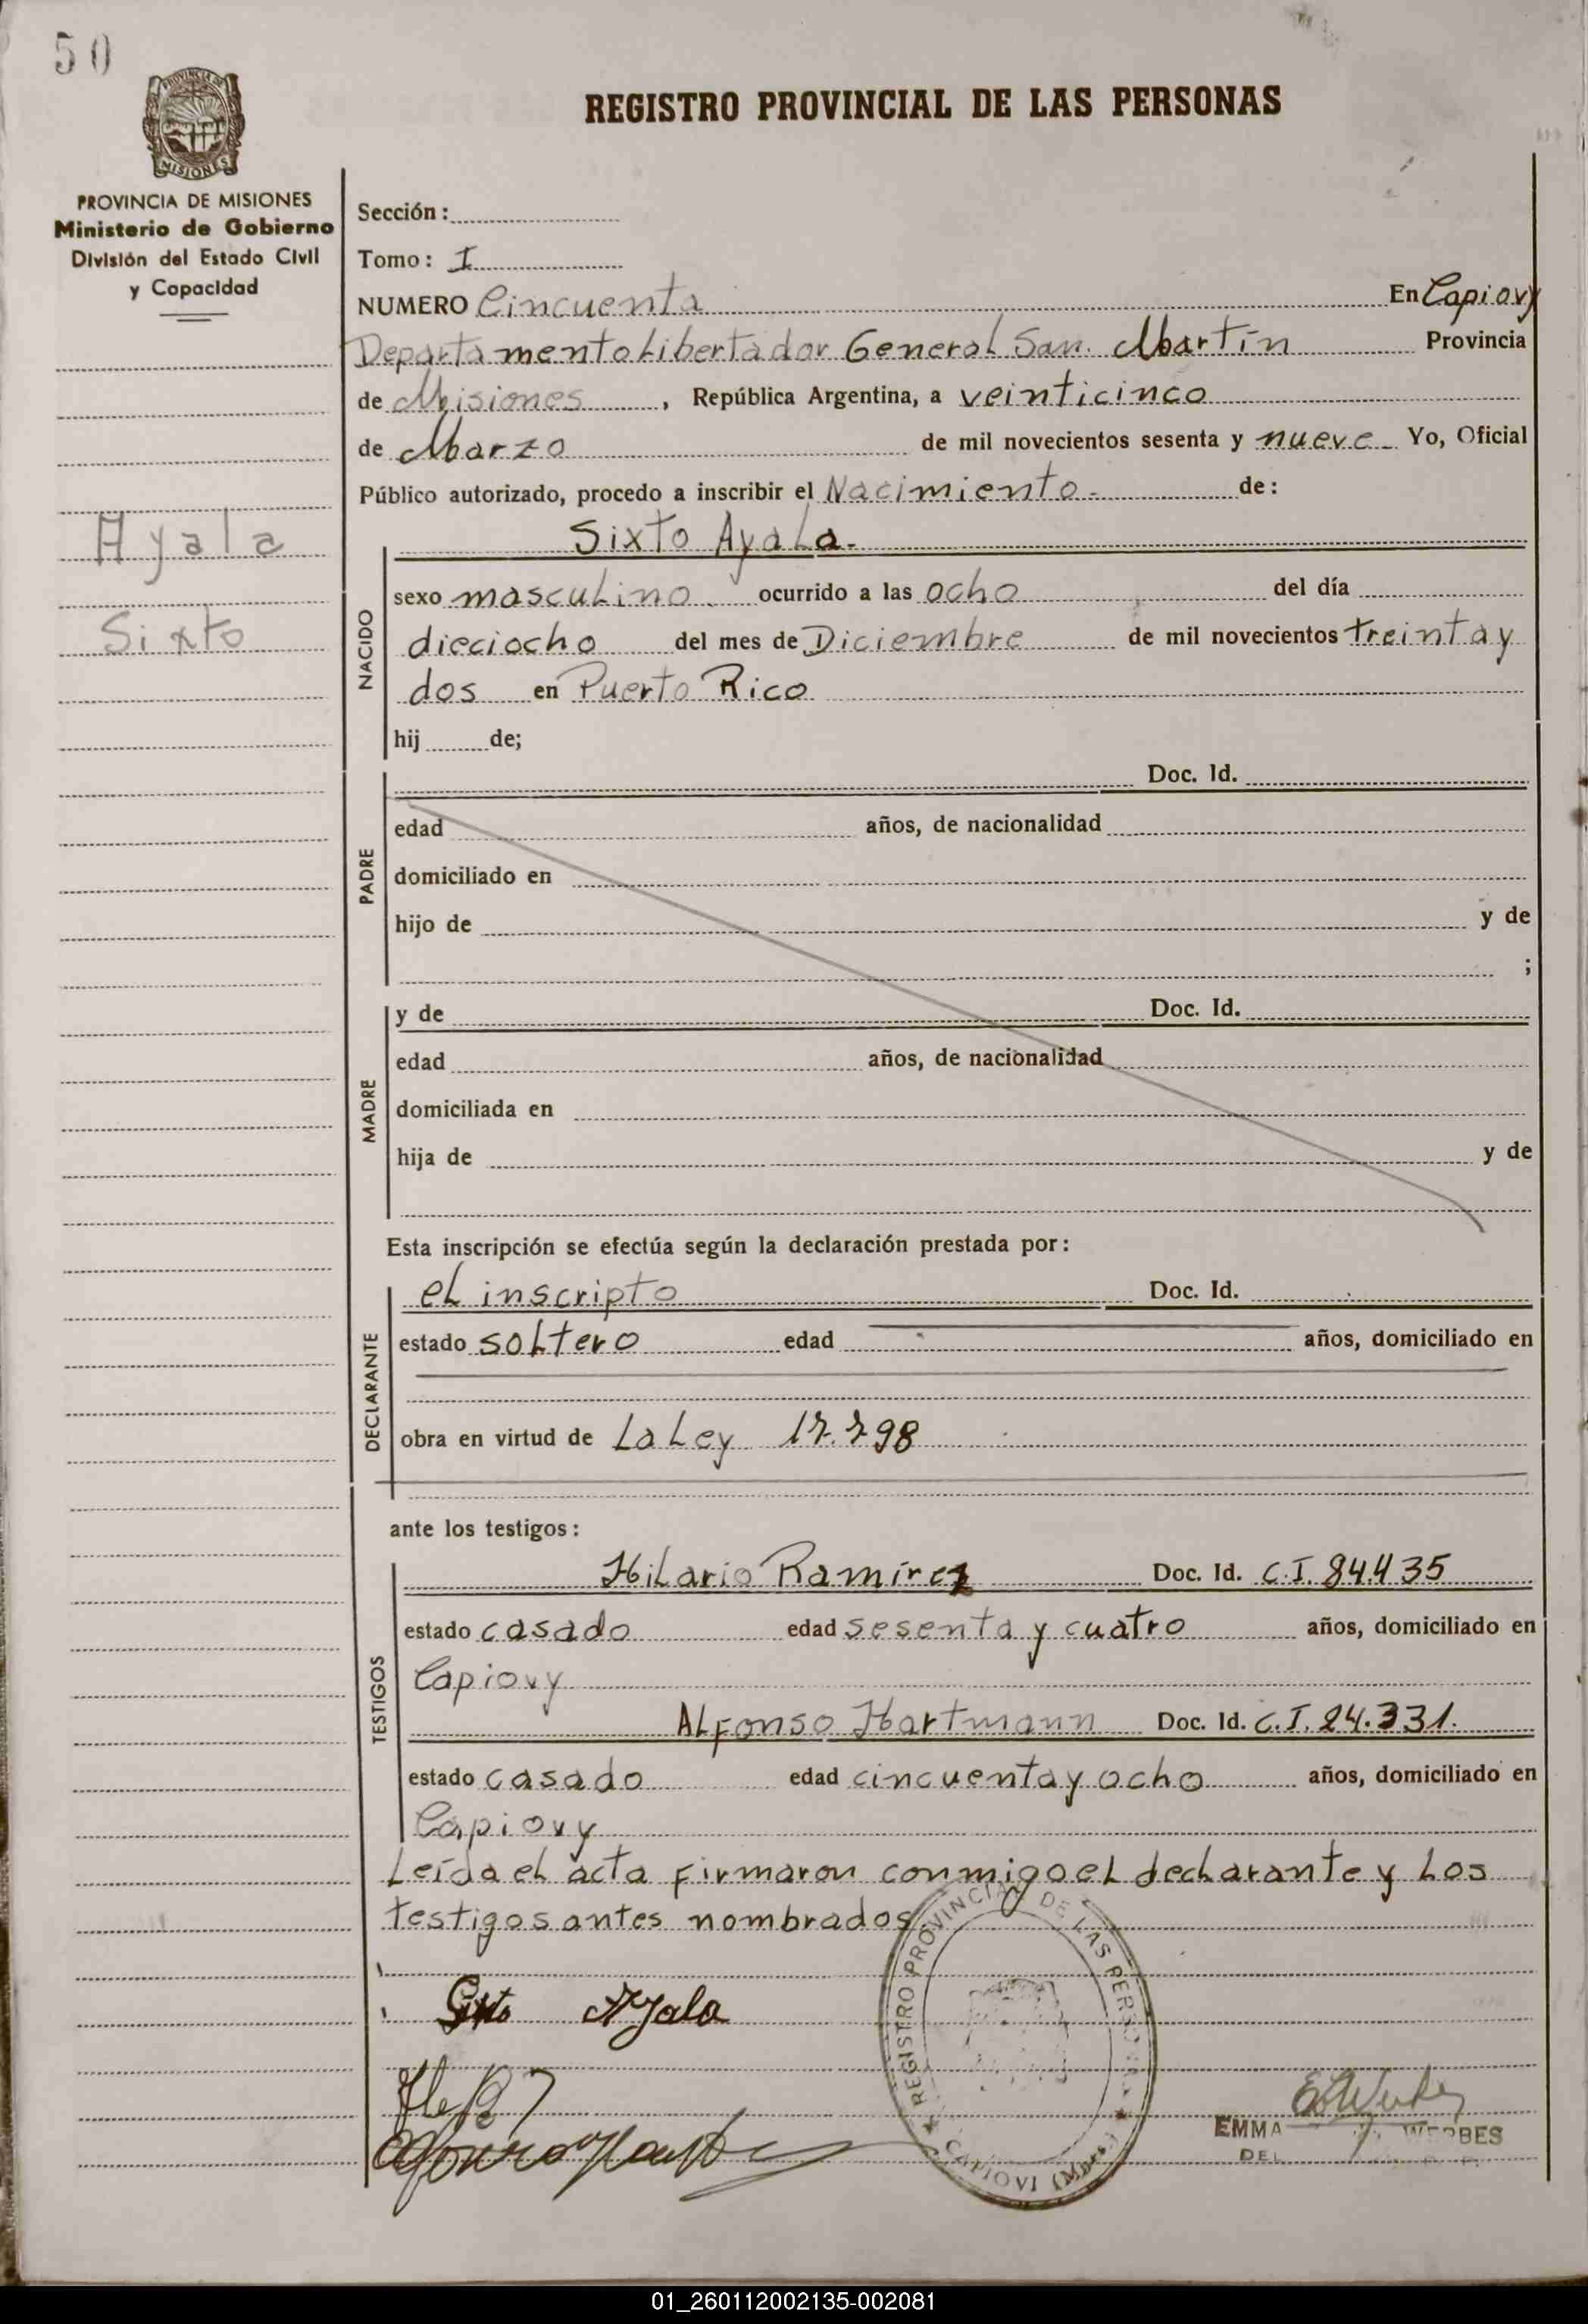 50
PROVINCIA DE
MISIONES
REGISTRO PROVINCIAL DE LAS PERSONAS
PROVINCIA DE MISIONES
Ministerio de Gobierno
División del Estado Civil
y Capacidad
Sección:
Tomo: I
NUMERO Cincuenta En Capiovy
Departamento Libertador General San Martín Provincia
de Misiones, República Argentina, a veinticinco
de Marzo de mil novecientos sesenta y nueve Yo, Oficial
Público autorizado, procedo a inscribir el Nacimiento- de:
Ayala
Sixto
NACIDO
Sixto Ayala-
sexo masculino ocurrido a las ocho del día
dieciocho del mes de Diciembre de mil novecientos treinta y
dos en Puerto Rico
hij de;
PADRE
Doc. Id.
edad años, de nacionalidad
domiciliado en
hijo de y de
;
MADRE
y de Doc. Id.
edad años, de nacionalidad
domiciliada en
hija de y de
Esta inscripción se efectúa según la declaración prestada por:
DECLARANTE
el inscripto Doc. Id.
estado soltero edad años, domiciliado en
obra en virtud de La Ley 17.798
ante los testigos:
TESTIGOS
Hilario Ramírez Doc. Id. C.I. 84435
estado casado edad sesenta y cuatro años, domiciliado en
Capiovy
Alfonso Hartmann Doc. Id. C.I. 24.331.
estado casado edad cincuenta y ocho años, domiciliado en
Capiovy
Leída el acta firmaron conmigo el declarante y los
testigos antes nombrados
Sixto Ayala
REGISTRO PROVINCIAL DE LAS PERSONAS
CAPIOVI (Mnes.)
EMMA WERBES
DEL
01_260112002135-002081